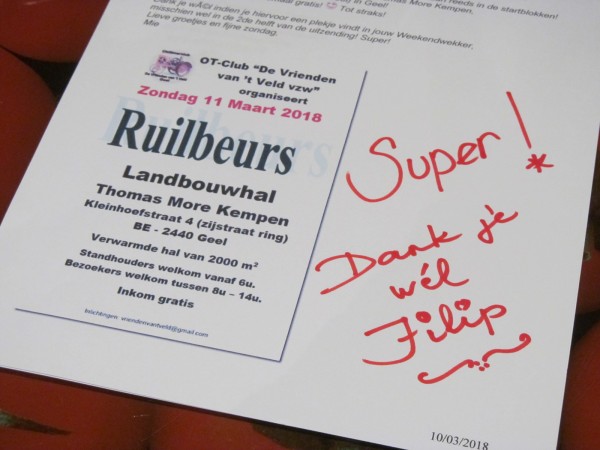 reeds in de startblokken!
gratis! Tot straks!
More Kempen.
indien je hiervoor een plekje vindt in jouw Weekendwekker,
misschien wel in de 2de helft van de uitzending! Super!
Lieve groetjes en fijne zondag.
Mie
OT-Club “De Vrienden
van ’t Veld vzw”
organiseert
Zondag 11 Maart 2018
Ruilbeurs
Landbouwhal
Thomas More Kempen
Kleinhoefstraat 4 (zijstraat ring)
BE - 2440 Geel
Verwarmde hal van 2000 m²
Standhouders welkom vanaf 6u.
Bezoekers welkom tussen 8u – 14u.
Inkom gratis
Inlichtingen: vriendenvantveld@gmail.com
Super!
Dank je
wél
Filip
10/03/2018